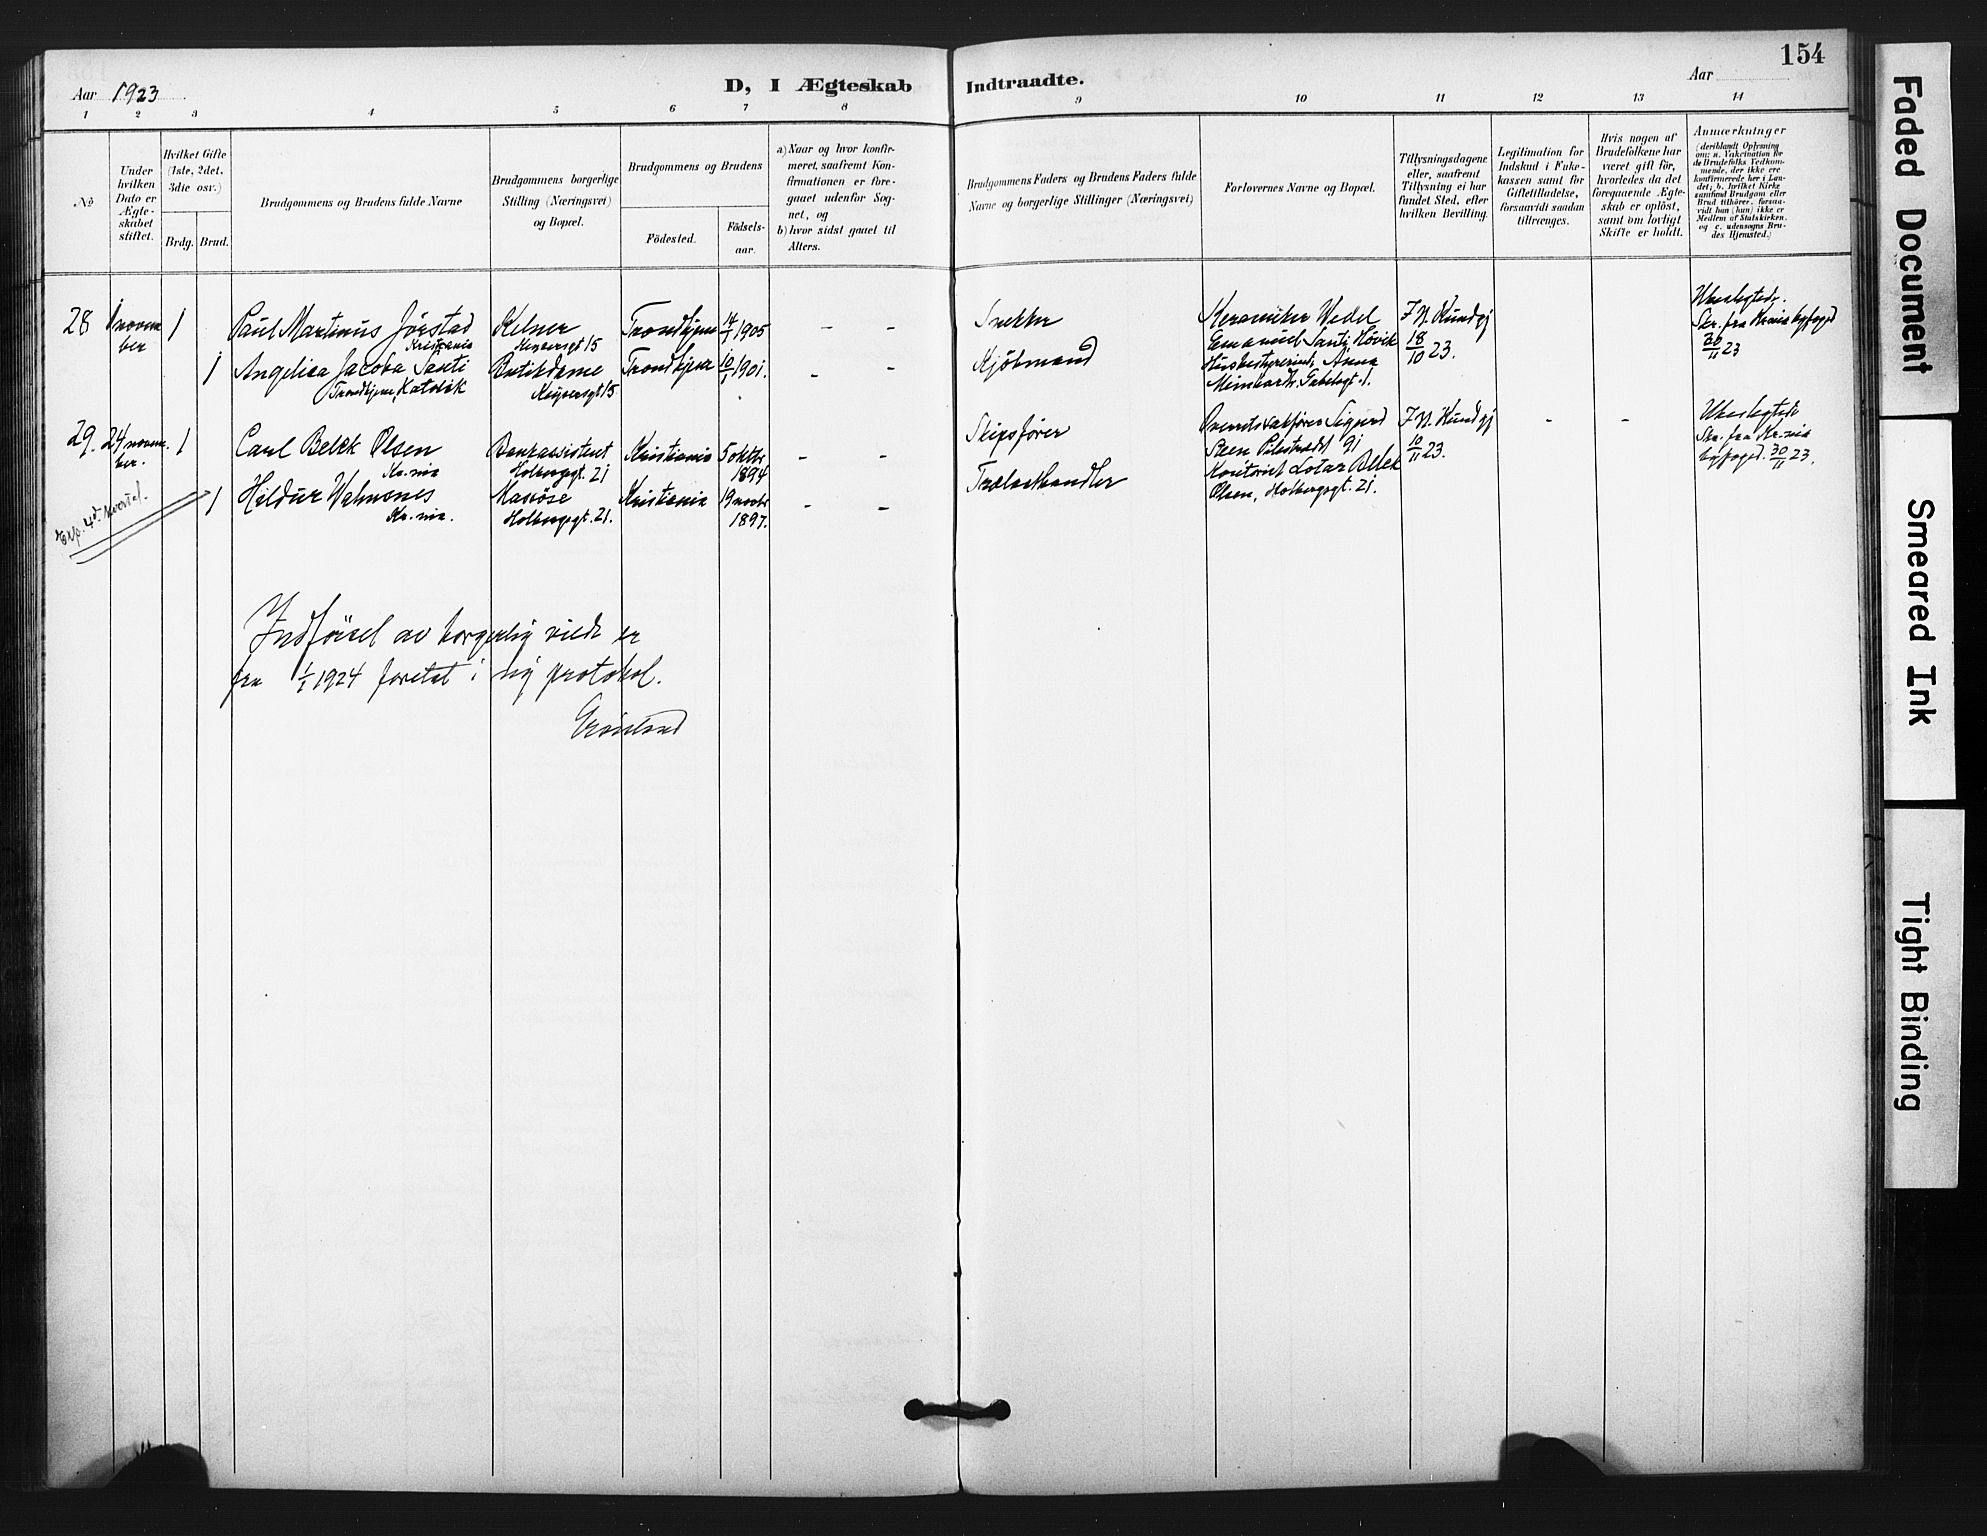 154
Aar 1923
D, I Ægteskab
Indtraadte.
Aar
1 2 3 4 5 6 7 8 9 10 11 12 13 14
No
Under
hvilken
Dato er
Ægte-
skabet
stiftet.
Hvilket Gifte
(1ste, 2det,
3die osv.)
Brdg. Brud.
Brudgommens og Brudens fulde Navne
Brudgommens borgerlige
Stilling (Næringsvei)
og Bopæl.
Brudgommens og Brudens
Födested.
Födsels-
aar.
a) Naar og hvor konfir-
meret, saafremt Kon-
firmationen er fore-
gaaet udenfor Sog-
net, og
b) hvor sidst gaaet til
Alters.
Brudgommens Faders og Brudens Faders fulde
Navne og borgerlige Stillinger (Næringsvei)
Forlovernes Navne og Bopæl.
Tillysningsdagene
eller, saafremt
Tillysning ei har
fundet Sted, efter
hvilken Bevilling.
Legitimation for
Indskud i Enke-
kassen samt for
Giftetilladelse,
forsaavidt saadan
tiltrænges.
Hvis nogen af
Brudefolkene har
været gift før,
hvorledes da det
foregaaende Ægte-
skab er opløst,
samt om lovligt
Skifte er holdt.
Anmærkninger
(deriblandt Oplysning
om: a. Vakcination for
de Brudefolks Vedkom-
mende, der ikke ere
konfirmerede her i Lan-
det; b. hvilket Kirke
samfund Brudgom eller
Brud tilhører, forsaa-
vidt han (hun) ikke er
Medlem af Statskirken.
og c. udensogns Bru-
des Hjemsted.)
28 1 novem
ber 1 Paul Martinus Jørstad
Kristiania
Kelner
Keysersgt 15
Trondhjem 14/1 1905 - - Snekker
Keramiker Wedel
Emanuel Santi, Høvik
F. N. Kundgj
18/10 23.
Ubeslegtede.
Skr. fra Krania byfoged
30/11 23
1 Angelica Jacoba Santi
Trondhjem, Katolik
Butikdame
Keysersgt 15
Trondhjem 10/1 1901. - - Kjøbmand
Husbestyrerinde Anna
Meinhardt, Gabelsgt. 1.
29. 24 novem-
ber. 1 Carl Belek Olsen
Kr.nia
Bankassistent
Holbergsgt. 21
Kristiania 5 oktbr
1894 - - Skipsfører
Overretssakfører Sigurd
Steen Pilestrædet 91
F. N. Kundgj
10/11 23. - -
Ubeslegtede
Skr. fra Kr.nia
byfoged. 30/11 23.
1 Hildur Walmsnes
Kr.nia.
Massøse
Holbergsgt. 21.
Kristiania 19 novbr
1897. - - Trælasthandler
Kontorist Lotar Belek
Olsen, Holbergsgt. 21.
Exp. 4d. kvartal.
Indførsel av borgerlig viede er
fra 1/1 1924 foretat i ny protokol.
Grønland
Faded Document
Smeared Ink
Tight Binding